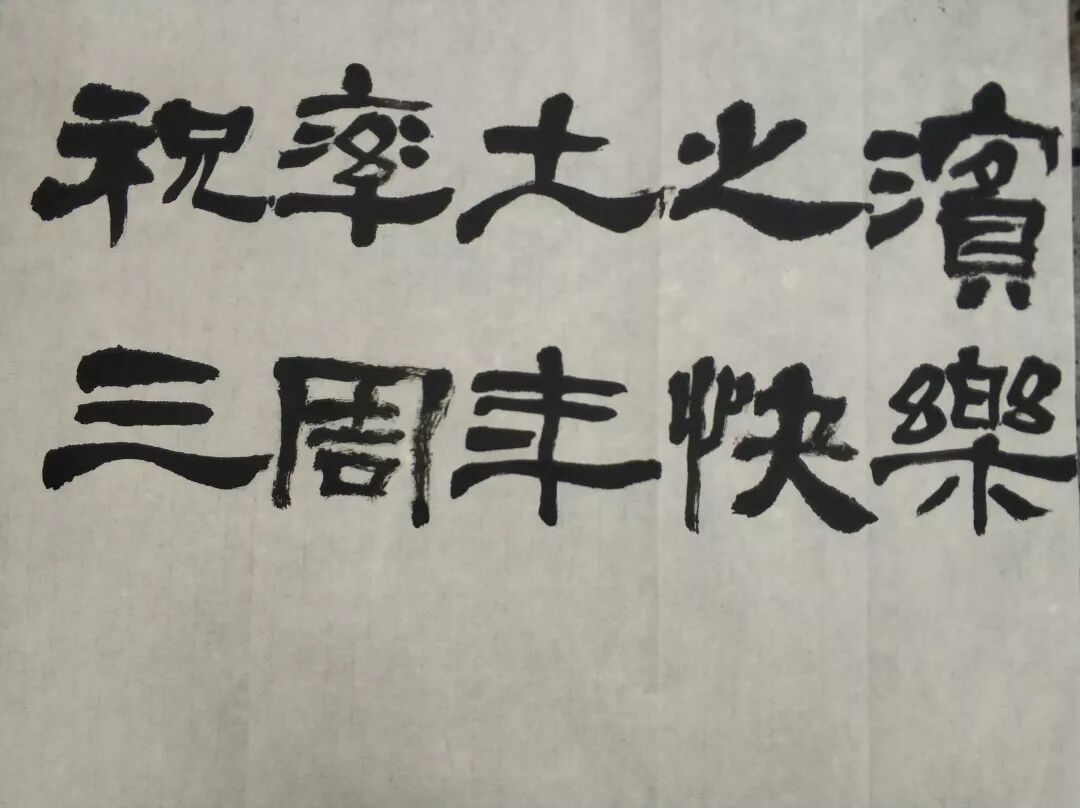 祝率土之濱
三周年快樂